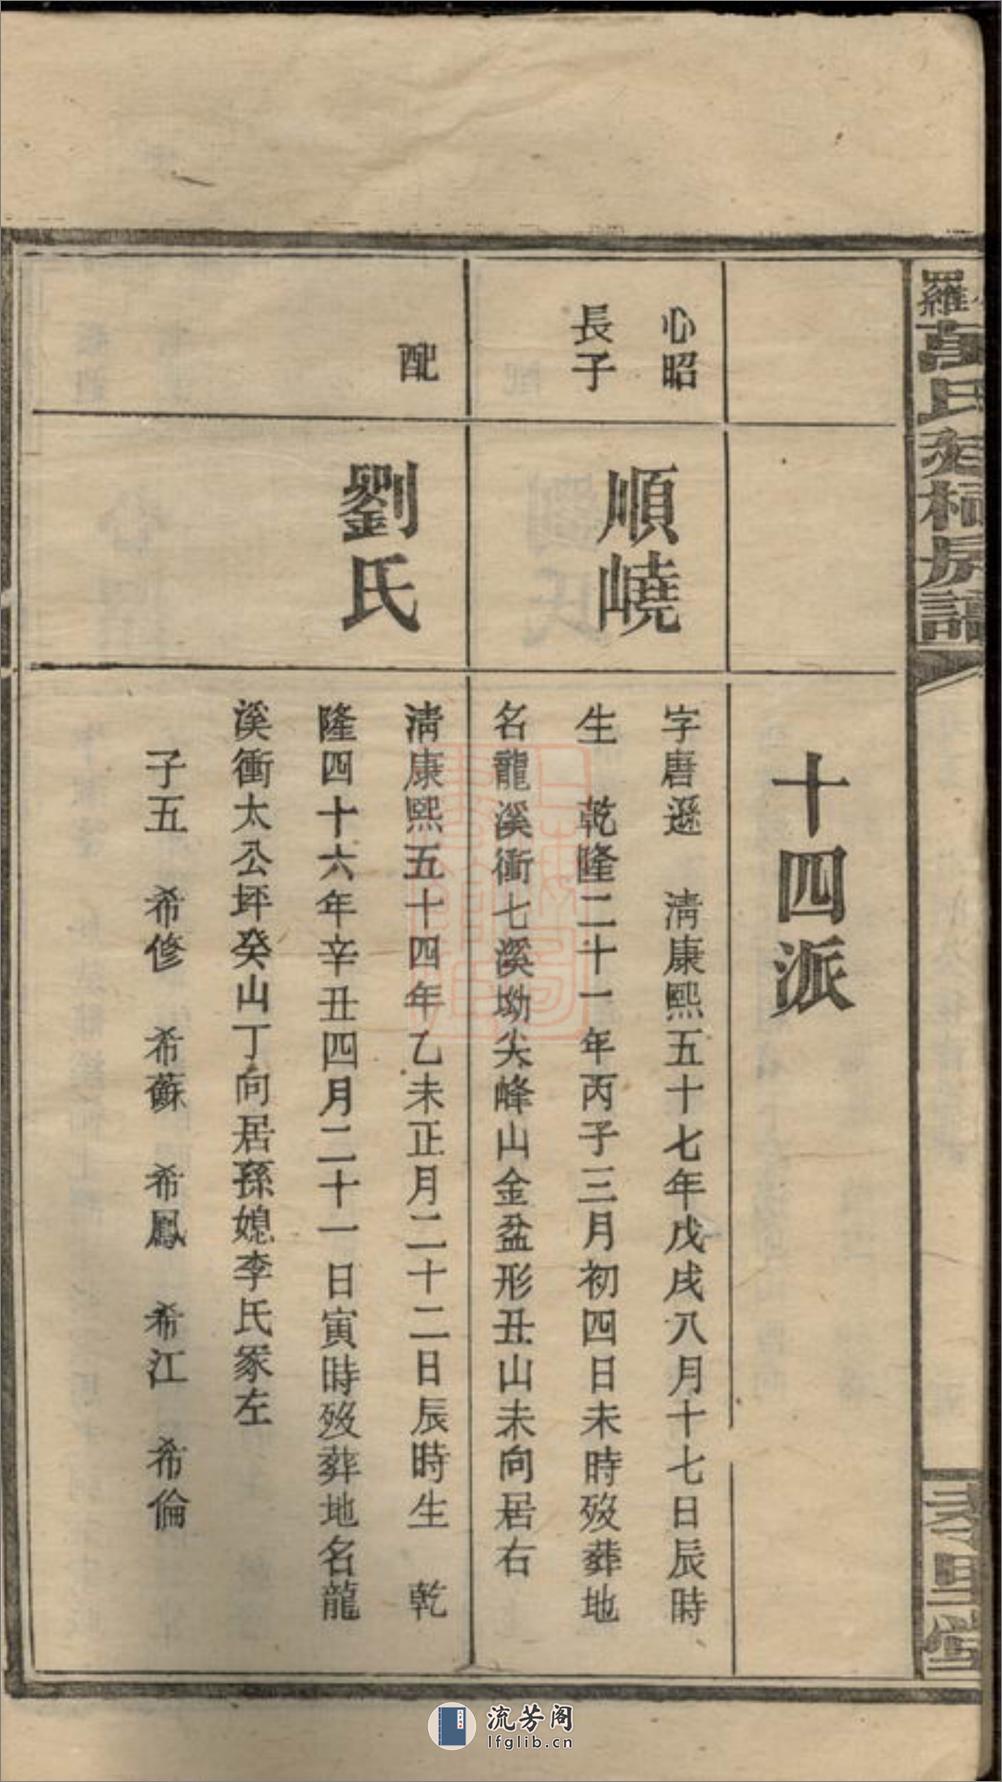 羅萬氏友栢房譜
十四派
心昭
長子
順嶢
字唐遜　淸康熙五十七年戊戌八月十七日辰時
生　乾隆二十一年丙子三月初四日未時歿葬地
名龍溪衝七溪坳尖峰山金盆形丑山未向居右
配
劉氏
淸康熙五十四年乙未正月二十二日辰時生　乾
隆四十六年辛丑四月二十一日寅時歿葬地名龍
溪衝太公坪癸山丁向居孫媳李氏冢左
子五　希修　希蘇　希鳳　希江　希倫
流芳阁
lfglib.cn